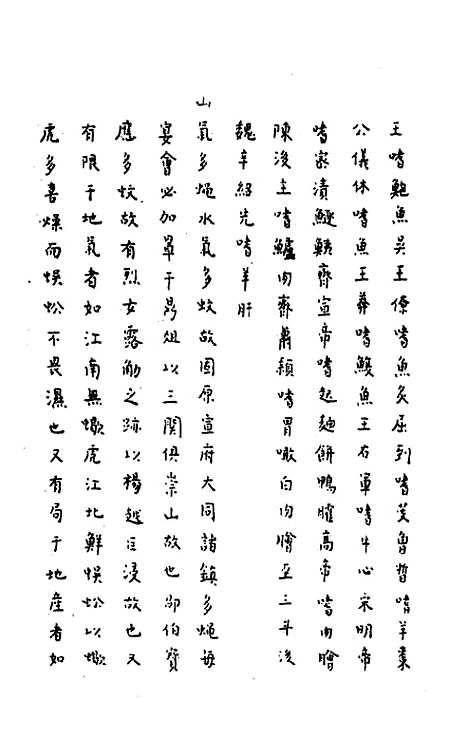 王嗜鮑魚吳王僚嗜魚炙屈到嗜芰魯晳嗜羊棗
公儀休嗜魚王莽嗜鰒魚王右軍嗜牛心宋明帝
嗜蜜漬鱁鮧齊宣帝嗜起麵餅鴨臛高帝嗜肉膾
陳後主嗜鱸肉齊蕭穎嗜胃噉白肉膾至三斗後
魏辛紹先嗜羊肝
山氣多蠅水氣多蚊故固原宣府大同諸鎮多蠅每
宴會必加罩于鼎俎以三關俱崇山故也邵伯寶
應多蚊故有烈女露觔之跡以楊越巨浸故也又
有限于地氣者如江南無蠍虎江北鮮蜈蚣以蠍
虎多喜燥而蜈蚣不畏濕也又有局于地產者如